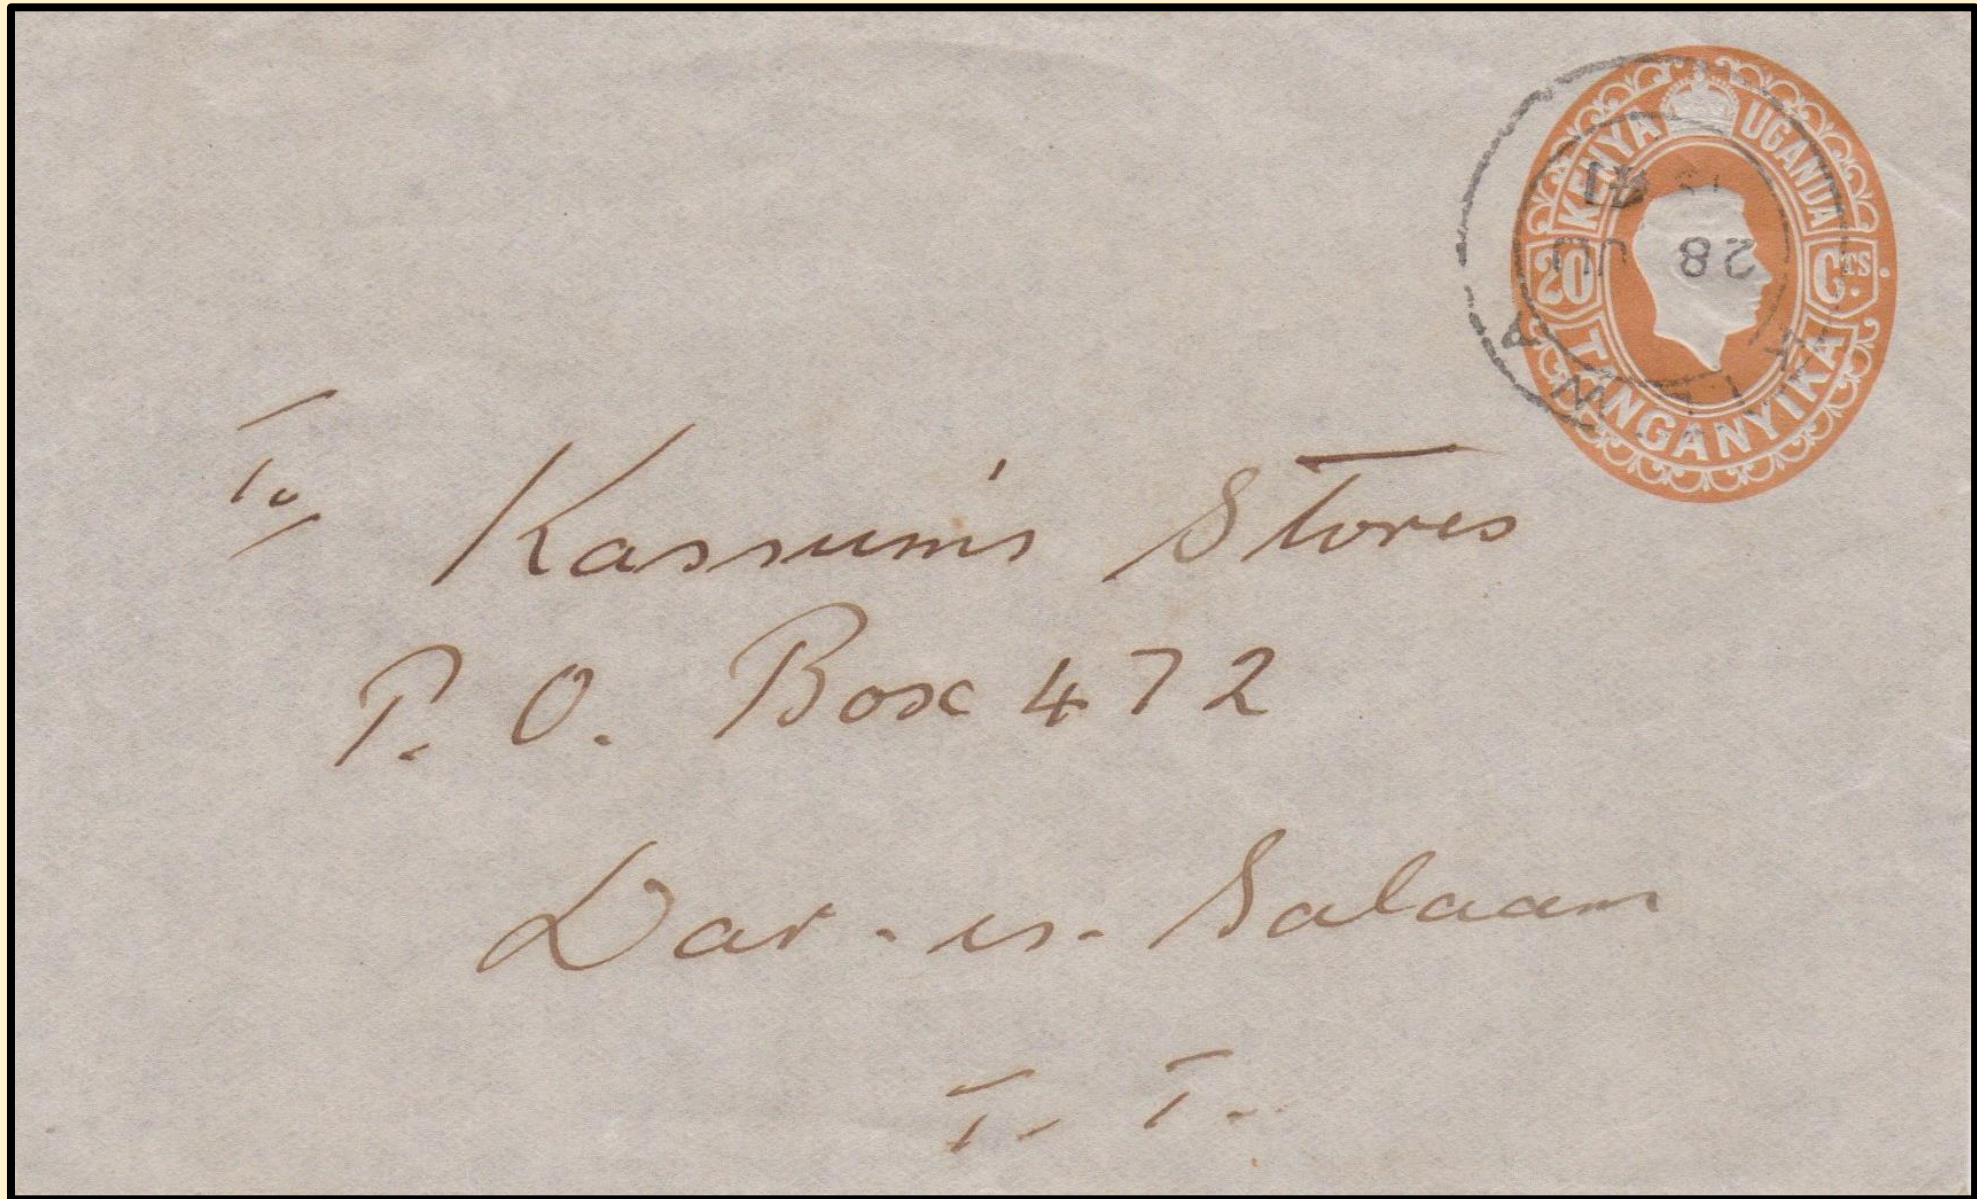 KENYA UGANDA
20 CTS.
TANGANYIKA
KILWA
28 JU
41
To
Kassum's Stores
P. O. Box 472
Dar-es-Salaam
T. T.